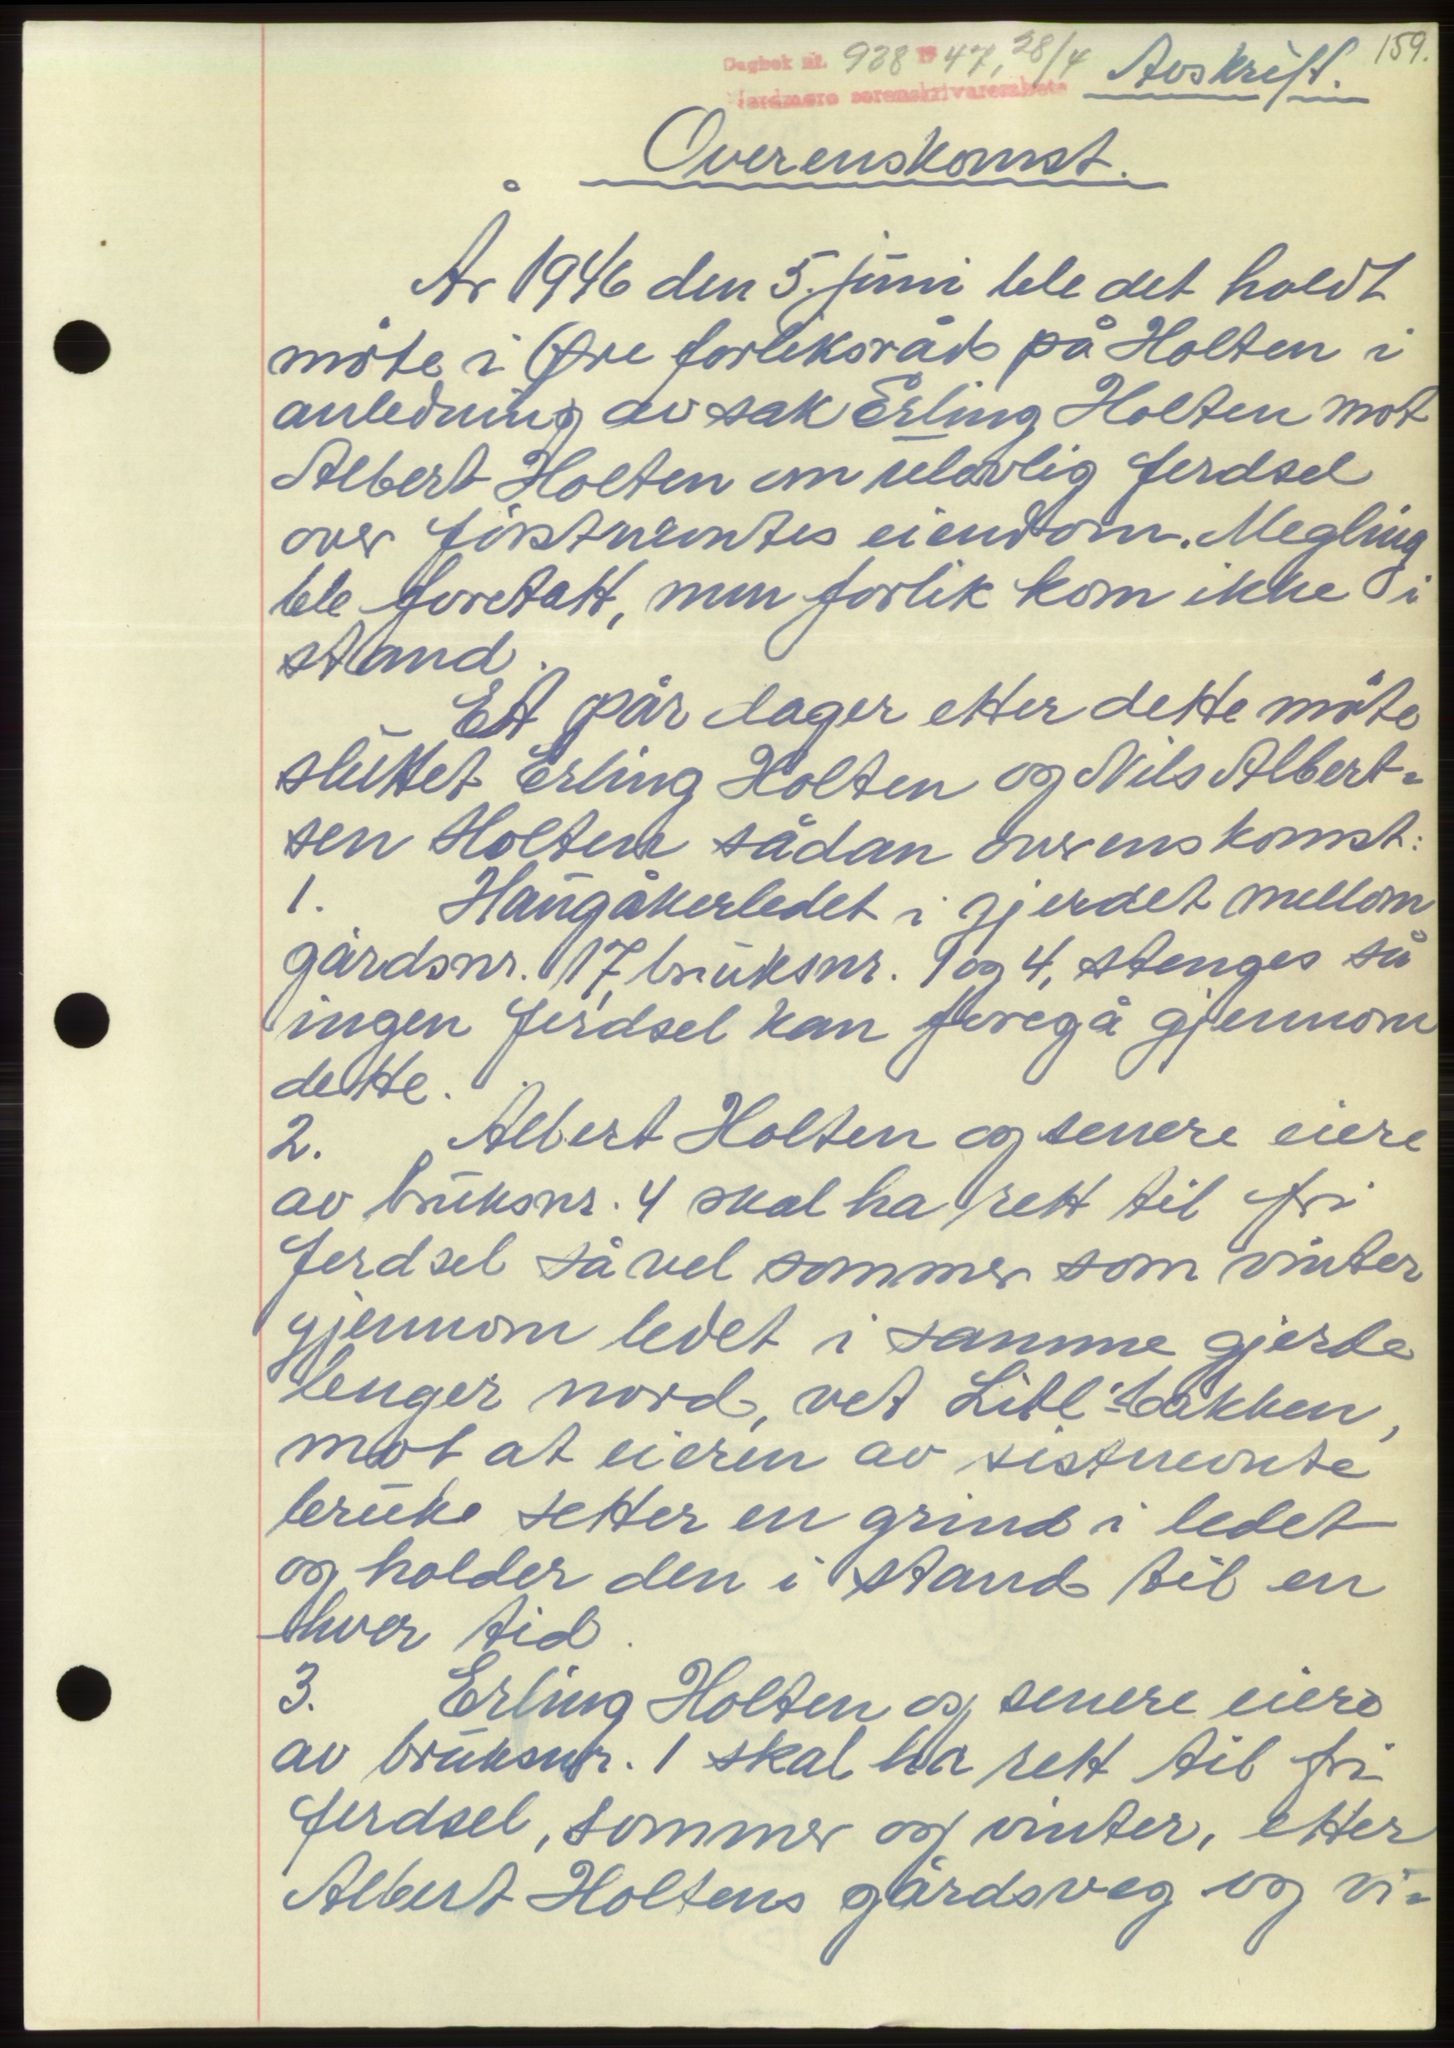 159.
Dagbok nr. 938 1947, 28/4
Nordmøre sorenskrivarembete
Avskrift.
Overenskomst.
År 1946 den 5. juni ble det holdt
møte i Øre forliksråd på Holten i
anledning av sak Erling Holten mot
Albert Holten om ulovlig ferdsel
over førstnevntes eiendom. Megling
ble foretatt, men forlik kom ikke i
stand.
Ett pår dager etter dette møte
sluttet Erling Holten og Nils Albert-
sen Holten sådan overenskomst:
1. Haugåkerledet i gjerdet mellom
gårdsnr. 17, bruksnr. 1 og 4, stenges så
ingen ferdsel kan foregå gjennom
dette.
2. Albert Holten og senere eiere
av bruksnr. 4 skal ha rett til fri
ferdsel såvel sommer som vinter
gjennom ledet i samme gjerde
lenger nord, vet Litl-bakken,
mot at eieren av sistnevnte
bruke setter en grind i ledet
og holder den i stand til en
hver tid.
3. Erling Holten og senere eiere
av bruksnr. 1 skal ha rett til fri
ferdsel, sommer og vinter, etter
Albert Holtens gårdsveg og vi-